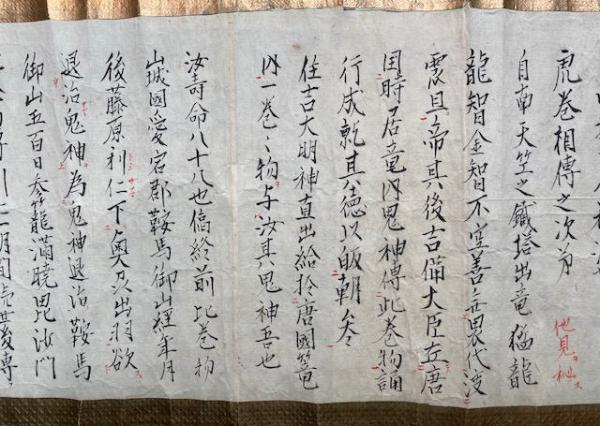 虎巻相傳之次第
他見
自南天竺之鐵塔出竜猛龍
龍智金智不空善無畏代渡
震旦帝其後吉備大臣在唐
時居竜内鬼神傳此巻物誦
行成就其徳以皈朝矣
住吉大明神直出給於唐國篭
内一巻ゝ物与汝其鬼神吾也
汝壽命八十八也臨終前此巻物
山城國愛宕郡鞍馬御山経年月
後藤原利仁下奥及出羽欲
退治鬼神為鬼神退治鞍馬
御山五百日参篭満暁毘沙門